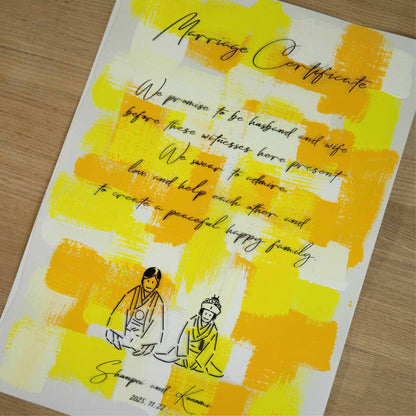 Marriage Certificate
We promise to be husband and wife
before these witnesses here present
We swear to admire
love and help each other and
to create a peaceful happy family.
and
2025.11.22